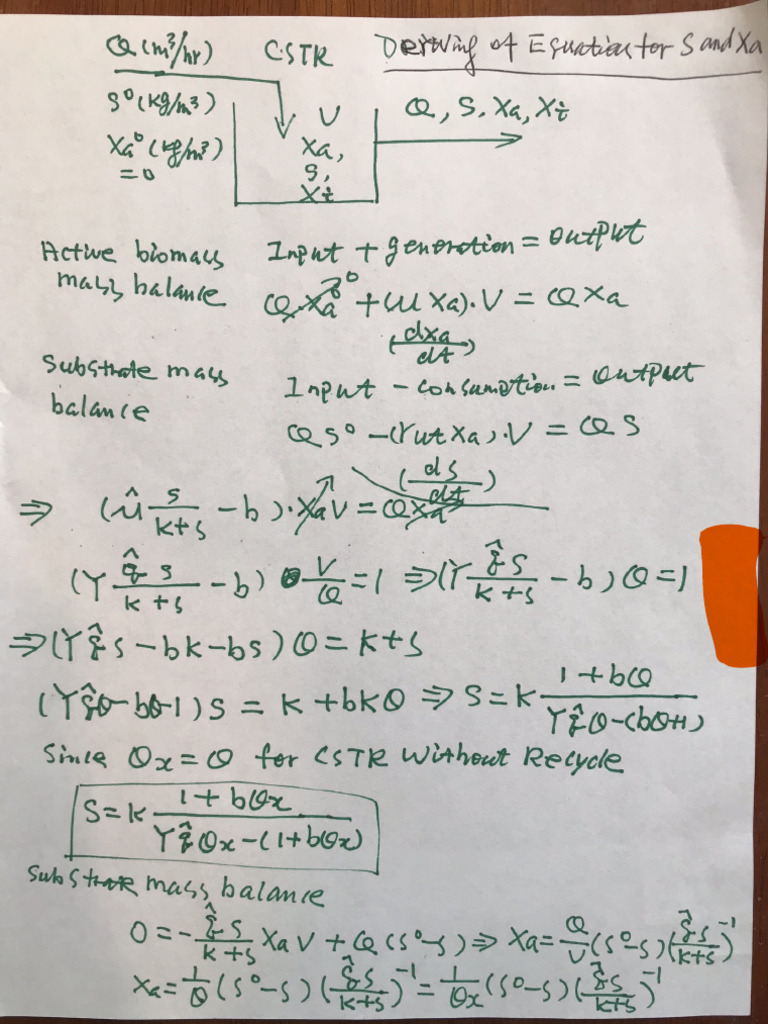 Q (m³/hr) CSTR Deriving of Equation for S and Xa
S⁰ (kg/m³) V Q, S, Xa, Xi
Xa⁰ (kg/m³) Xa,
= 0 S,
Xi
Active biomass Input + generation = output
mass balance Q·Xa⁰ → 0 + (μ Xa)·V = Q Xa
(dXa/dt)
Substrate mass Input - consumption = output
balance Q S⁰ - (rut Xa)·V = Q S
(dS/dt)
⇒ (μ̂ S/(K+S) - b)·Xa V = Q Xa
(Y q̂ S/(K+S) - b) V/Q = 1 ⇒ (Y q̂ S/(K+S) - b) θ = 1
⇒ (Y q̂ S - bK - bS) θ = K + S
(Y q̂ θ - bθ - 1) S = K + bKθ ⇒ S = K (1 + bθ)/(Y q̂ θ - (bθ+1))
Since θx = θ for CSTR Without Recycle
S = K (1 + bθx)/(Y q̂ θx - (1 + bθx))
Substrate mass balance
0 = - q̂ S/(K+S) Xa V + Q (S⁰ - S) ⇒ Xa = Q/V (S⁰ - S) (q̂ S/(K+S))⁻¹
Xa = 1/θ (S⁰ - S) (q̂ S/(K+S))⁻¹ = 1/θx (S⁰ - S) (q̂ S/(K+S))⁻¹